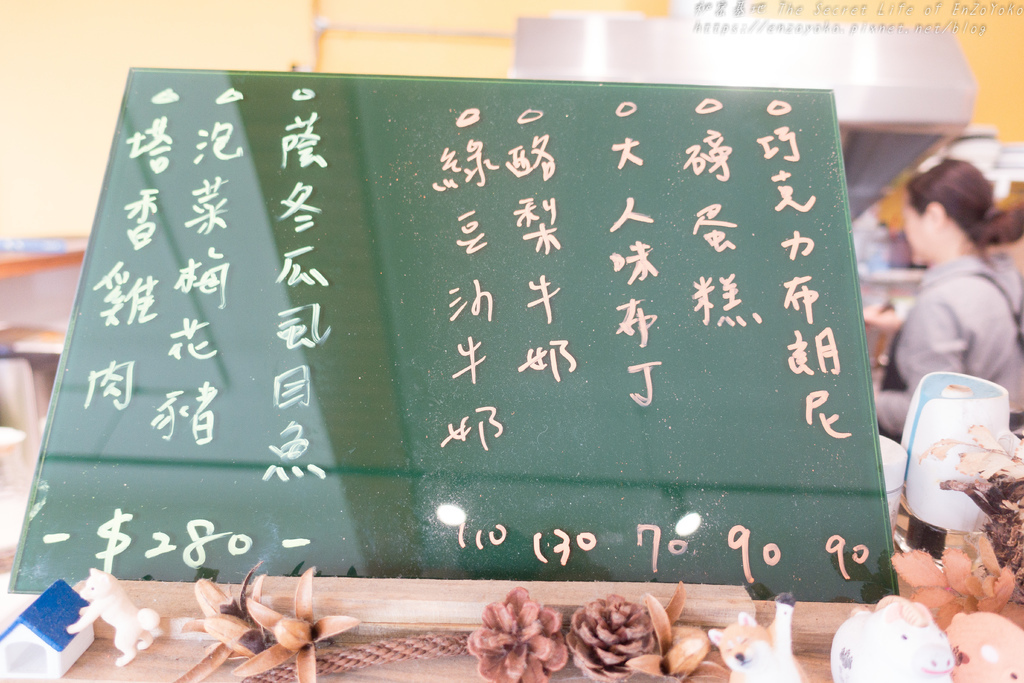 巧克力布朗尼 90
磅蛋糕 90
大人味布丁 70
酪梨牛奶 130
綠豆沙牛奶 110
蔭冬瓜虱目魚
泡菜梅花豬
塔香雞肉
-$280-
The Secret Life of EnZoYoKo
https://enzoyoko.pixnet.net/blog